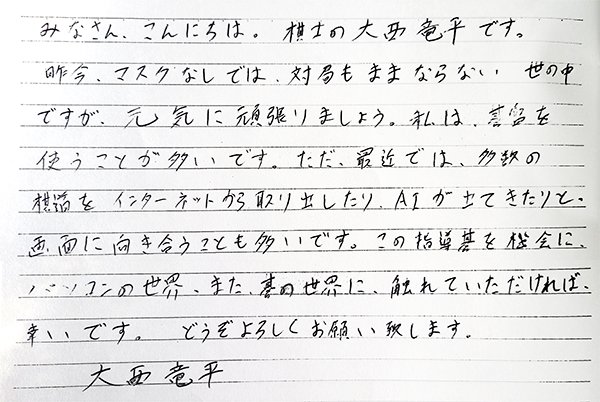 みなさん、こんにちは。 棋士の大西竜平です。
昨今、マスクなしでは、対局もままならない 世の中
ですが、元気に頑張りましょう。私は、碁盤を
使うことが多いです。ただ、最近では、多数の
棋譜を インターネットから取り出したり、AIが出てきたりと、
画面に向き合うことも多いです。この指導碁を機会に、
パソコンの世界、また、碁の世界に、触れていただければ、
幸いです。 どうぞよろしくお願い致します。
大西竜平